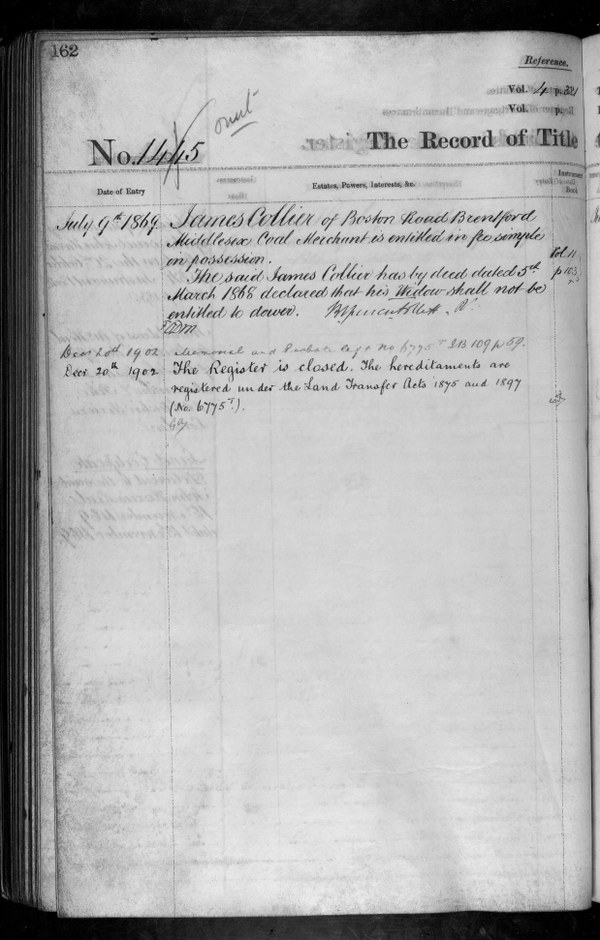 162
Reference.
Vol. 4 p. 321
Vol. p.
No. 1445
The Record of Title
Date of Entry
Estates, Powers, Interests, &c.
July 9th 1869
James Collier of Boston Road Brentford
Middlesex Coal Merchant is entitled in fee simple
in possession.
Vol. 11
The said James Collier has by deed dated 5th
p 103
March 1868 declared that his Widow shall not be
entitled to dower.
Decr 20th 1902
Memorial and Probate No 6775 109 p 59.
Decr 20th 1902
The Register is closed. The hereditaments are
registered under the Land Transfer Acts 1875 and 1897
(No. 6775T).